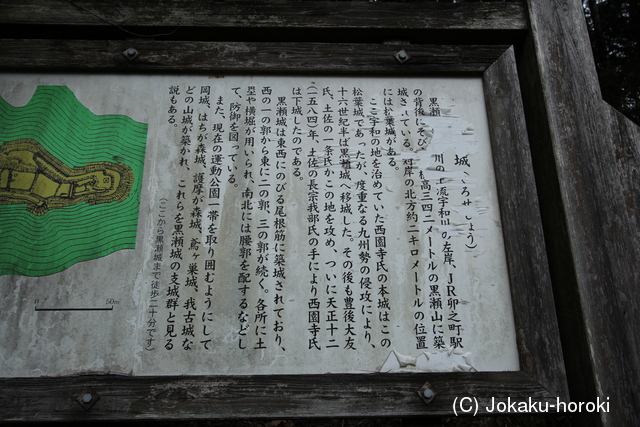 城(くろせじょう)
黒瀬　川の上流宇和川の左岸、ＪＲ卯之町駅
の背後にそび　標高三四二メートルの黒瀬山に築
城されている。対岸の北方約二キロメートルの位置
には松葉城がある。
ここ宇和の地を治めていた西園寺氏の本城はこの
松葉城であったが、度重なる九州勢の侵攻により、
十六世紀半ば黒瀬城へ移城した。その後も豊後大友
氏、土佐の一条氏がこの地を攻め、ついに天正十二
(一五八四)年、土佐の長宗我部氏の手により西園寺氏
は下城したのである。
黒瀬城は東西にのびる尾根筋に築城されており、
西の一の郭から東に二の郭、三の郭が続く。各所に土
塁や横堀が用いられ、南北には腰郭を配するなどし
て、防御を図っている。
また、現在の運動公園一帯を取り囲むようにして
岡城、はちが森城、護摩が森城、鳶ヶ巣城、我古城な
どの山城が築かれ、これらを黒瀬城の支城群と見る
説もある。
(ここから黒瀬城まで徒歩二十分です)
0 50m
(C) Jokaku-horoki